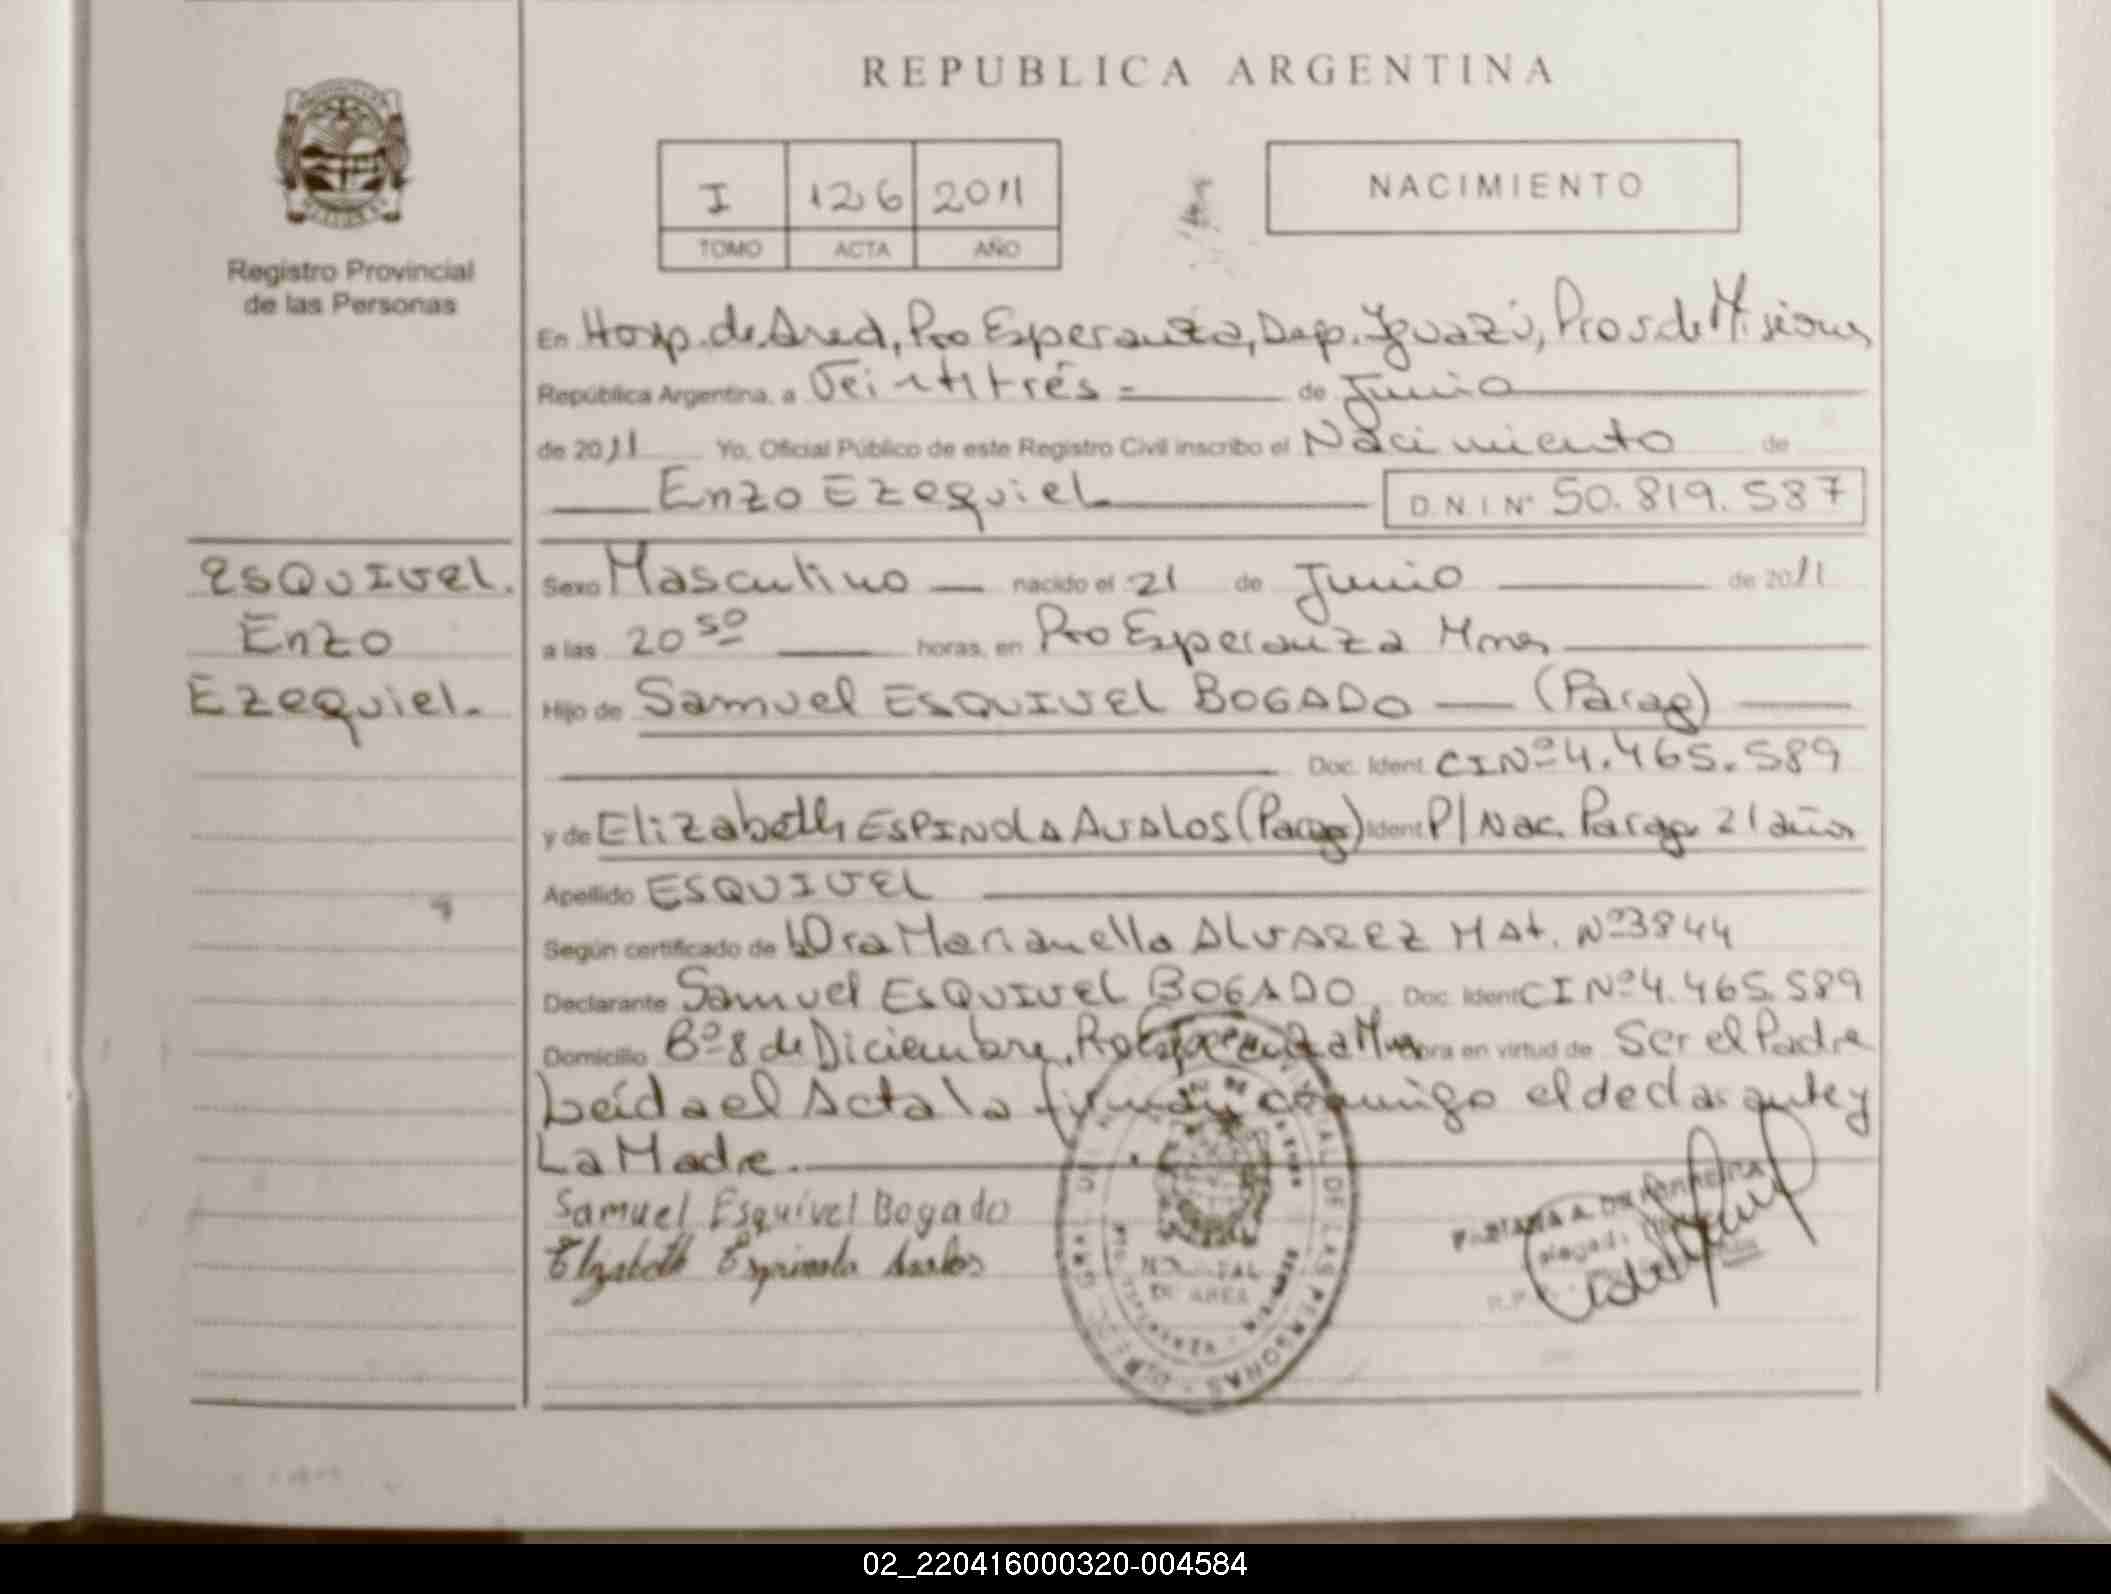 REPUBLICA ARGENTINA
I 126 2011
TOMO ACTA AÑO
NACIMIENTO
Registro Provincial
de las Personas
En Hosp. de Area, Pto Esperanza, Dep. Iguazú, Prov. de Misiones
República Argentina, a Veintitrés = de Junio
de 2011 Yo, Oficial Público de este Registro Civil inscribo el Nacimiento de
Enzo Ezequiel D.N.I Nº 50.819.587
ESQUIVEL.
Enzo
Ezequiel.
Sexo Masculino nacido el 21 de Junio de 2011
a las 20 50 horas, en Pto Esperanza Mnes
Hijo de Samuel ESQUIVEL BOGADO (Parag)
Doc. Ident. CI Nº 4.465.589
y de Elizabeth ESPINOLA AVALOS (Parag) Ident P/ Nac. Parag 21 años
Apellido ESQUIVEL
Según certificado de Dra Marianella ALVAREZ Mat. Nº 3844
Declarante Samuel ESQUIVEL BOGADO Doc. Ident CI Nº 4.465.589
Domicilio Bº 8 de Diciembre, Pto Esperanza Mnes obra en virtud de Ser el Padre
Leída el Acta la firman conmigo el declarante y
La Madre.
Samuel Esquivel Bogado
Elizabeth Espinola Avalos
DE LAS PERSONAS
HOSPITAL
DE AREA
02_220416000320-004584